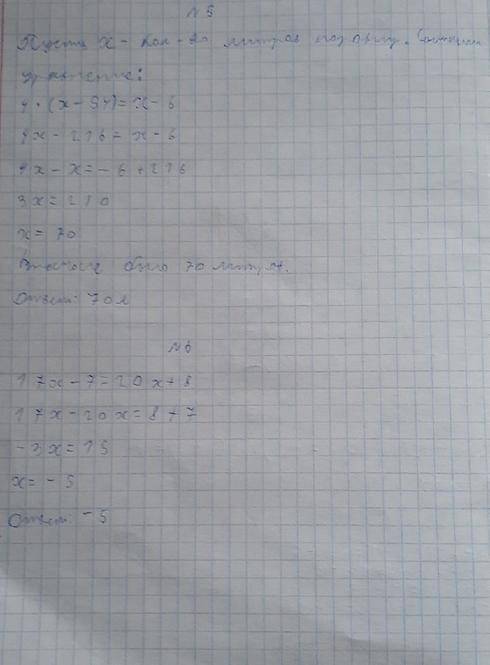 №5
Пусть x - кол-во литров
уравнение:
4·(x-54)=x-6
4x-216=x-6
4x-x=-6+216
3x=210
x=70
было 70 литров.
Ответ: 70л
№6
17x-7=20x+8
17x-20x=8+7
-3x=15
x=-5
Ответ: -5